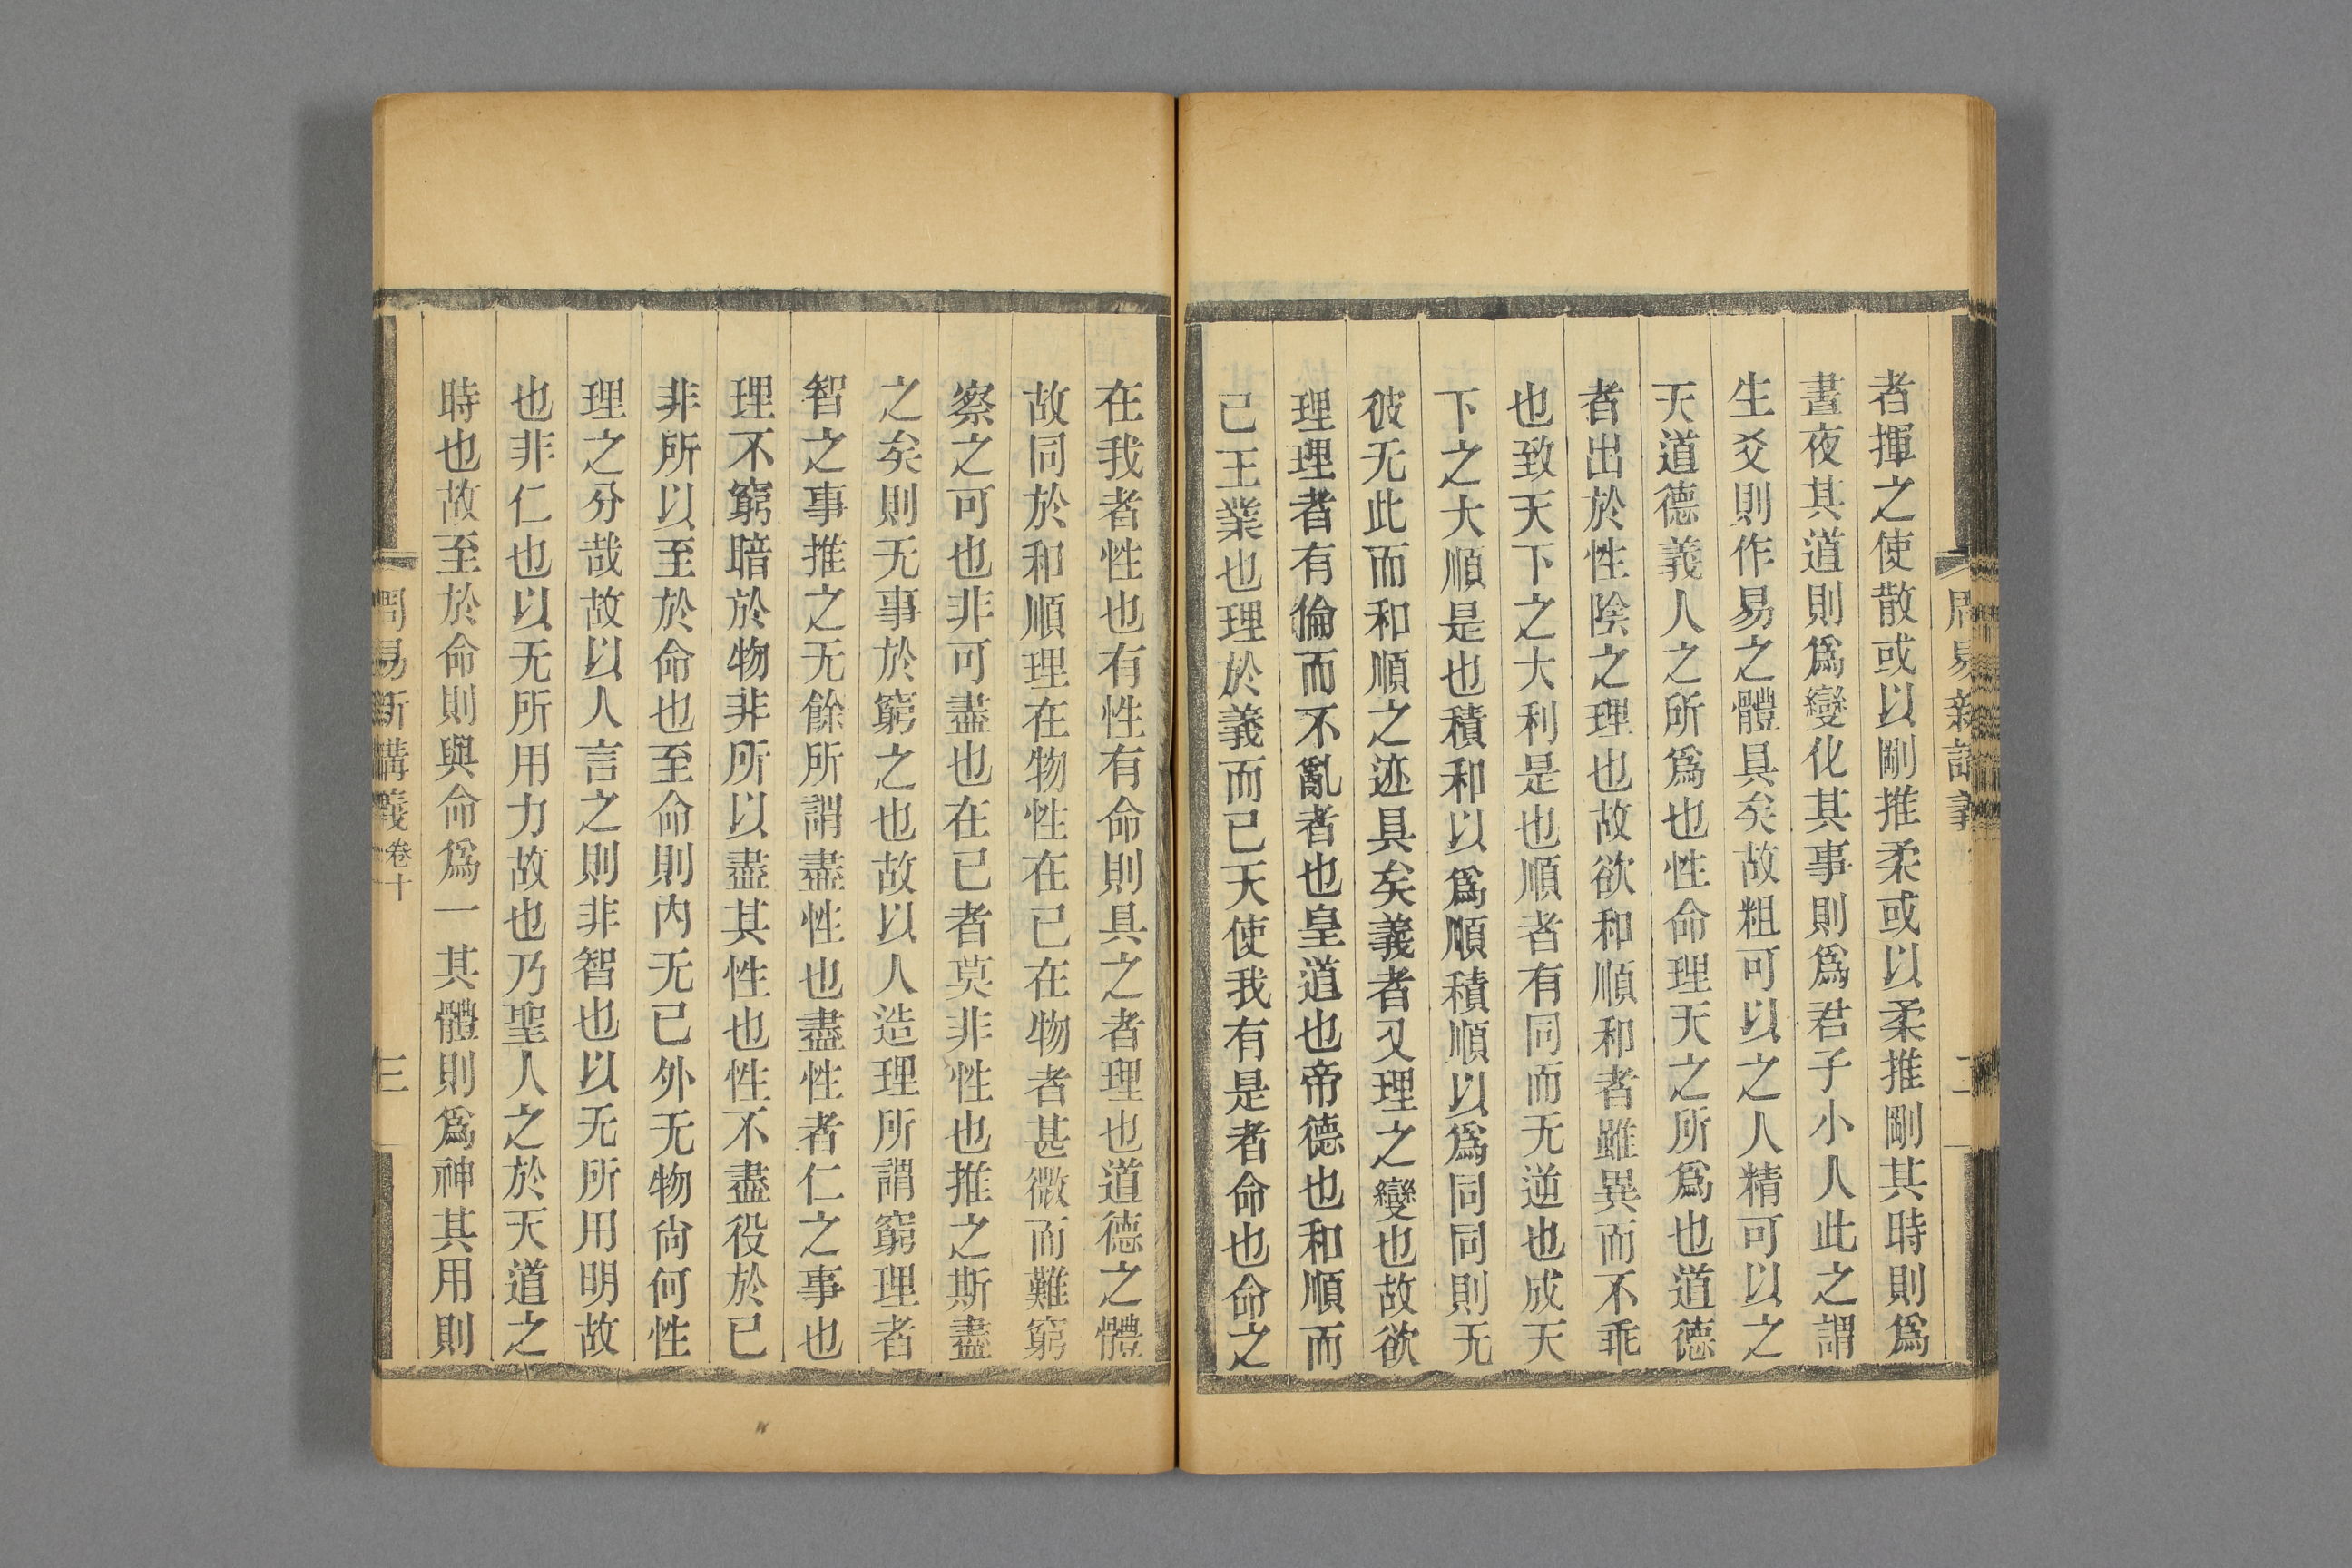 者揮之使散或以剛推柔或以柔推剛其時則爲
晝夜其道則爲變化其事則爲君子小人此之謂
生爻則作易之體具矣故粗可以之人精可以之
天道德義人之所爲也性命理天之所爲也道德
者出於性陰之理也故欲和順和者雖異而不乖
也致天下之大利是也順者有同而无逆也成天
下之大順是也積和以爲順積順以爲同同則无
彼无此而和順之迹具矣義者又理之變也故欲
理理者有倫而不亂者也皇道也帝德也和順而
已王業也理於義而已天使我有是者命也命之
在我者性也有性有命則具之者理也道德之體
故同於和順理在物性在已在物者甚微而難窮
察之可也非可盡也在已者莫非性也推之斯盡
之矣則无事於窮之也故以人造理所謂窮理者
智之事推之无餘所謂盡性也盡性者仁之事也
理不窮暗於物非所以盡其性也性不盡役於已
非所以至於命也至命則内无已外无物尙何性
理之分哉故以人言之則非智也以无所用明故
也非仁也以无所用力故也乃聖人之於天道之
時也故至於命則與命爲一其體則爲神其用則
周易新講義 卷十 三